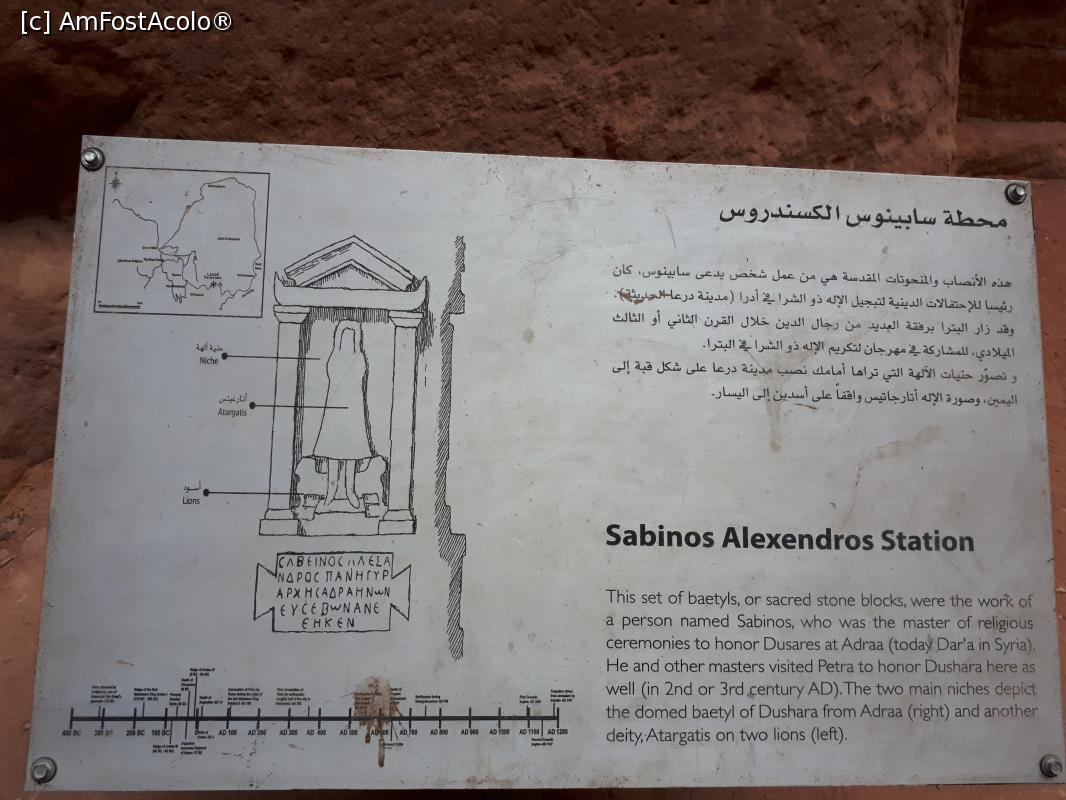 [c] AmFostAcolo®
محطة سابينوس الكسندروس
هذه الأنصاب والمنحوتات المقدسة هي من عمل شخص يدعى سابينوس، كان
رئيسا للإحتفالات الدينية لتبجيل الإله ذو الشرا في أدرا (مدينة درعا الحديثة).
وقد زار البترا برفقة العديد من رجال الدين خلال القرن الثاني أو الثالث
الميلادي، للمشاركة في مهرجان لتكريم الإله ذو الشرا في البترا.
و تصوّر حنيات الآلهة التي تراها أمامك نصب مدينة درعا على شكل قبة إلى
اليمين، وصورة الإله أتارجاتيس واقفاً على أسدين إلى اليسار.
حنية آلهة
Niche
أتارغيتس
Atargatis
أسود
Lions
CΑΒΕΙΝΟC ΑΛΕΞΑ
ΝΔΡΟC ΠΑΝΗΓΥΡ
ΑΡΧΗC ΑΔΡΑΗΝωΝ
ΕΥCΕΒωΝ ΑΝΕ
ΘΗΚΕΝ
Sabinos Alexendros Station
This set of baetyls, or sacred stone blocks, were the work of
a person named Sabinos, who was the master of religious
ceremonies to honor Dusares at Adraa (today Dar'a in Syria).
He and other masters visited Petra to honor Dushara here as
well (in 2nd or 3rd century AD). The two main niches depict
the domed baetyl of Dushara from Adraa (right) and another
deity, Atargatis on two lions (left).
400 BC 300 BC 200 BC 100 BC AD 100 AD 200 AD 300 AD 400 AD 500 AD 600 AD 700 AD 800 AD 900 AD 1000 AD 1100 AD 1200